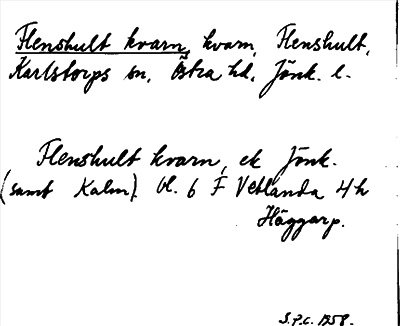 Flenshult kvarn, kvarn, Flenshult,
Karlstorps sn, Östra hd, Jönk. l.
Flenshult kvarn, ek Jönk.
(samt Kalm). bl. 6 F Vetlanda 4 h
Häggarp.
S.P.C. 1958.